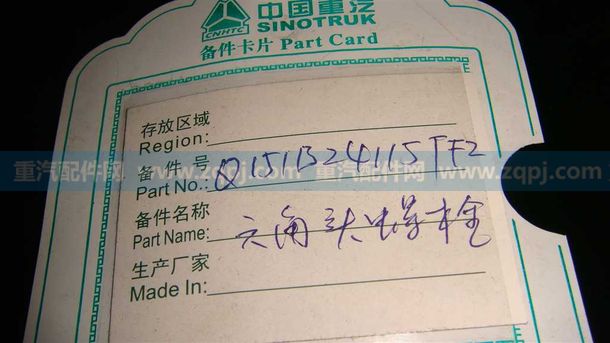 中国重汽
CNHTC SINOTRUK
备件卡片 Part Card
存放区域
Region:
备件号
Part No.: Q151B24115TF2
备件名称
Part Name: 六角头螺栓
生产厂家
Made In:
重汽配件网 www.zqpj.com 重汽配件网 www.zqpj.com